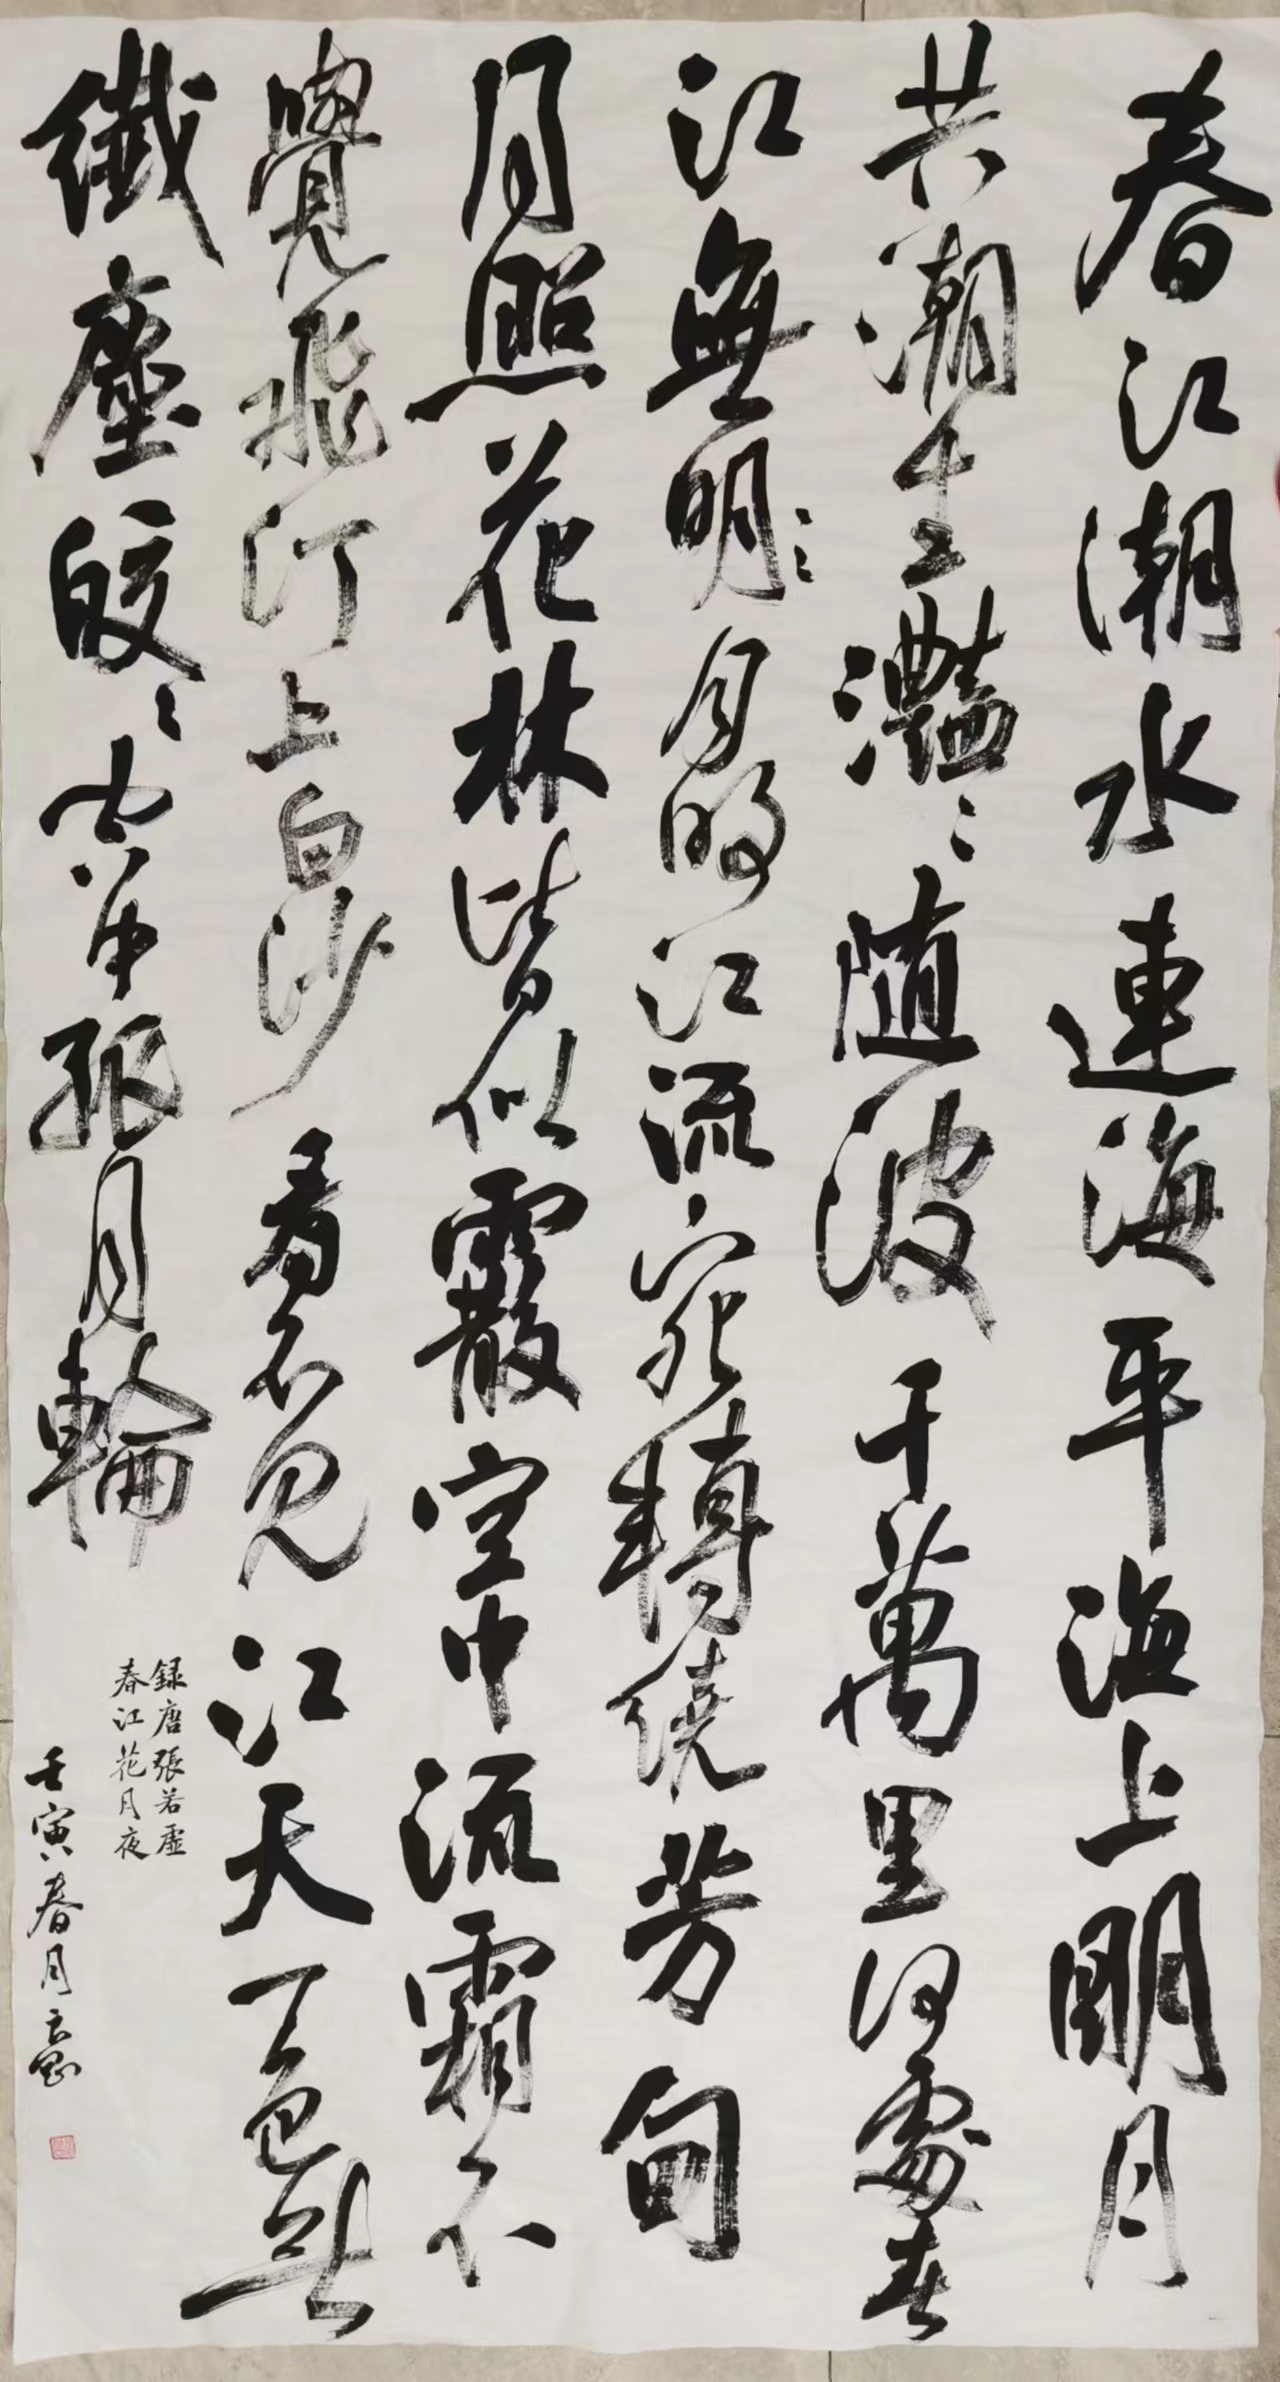 春江潮水連海平海上明月
共潮生灩〻随波千萬里何處春
江無明〻月明江流宛轉繞芳甸
月照花林皆似霰空中流霜不
覺飛汀上白沙看不見江天一色無
纖塵皎〻空中孤月輪
録唐張若虛
春江花月夜
壬寅春月